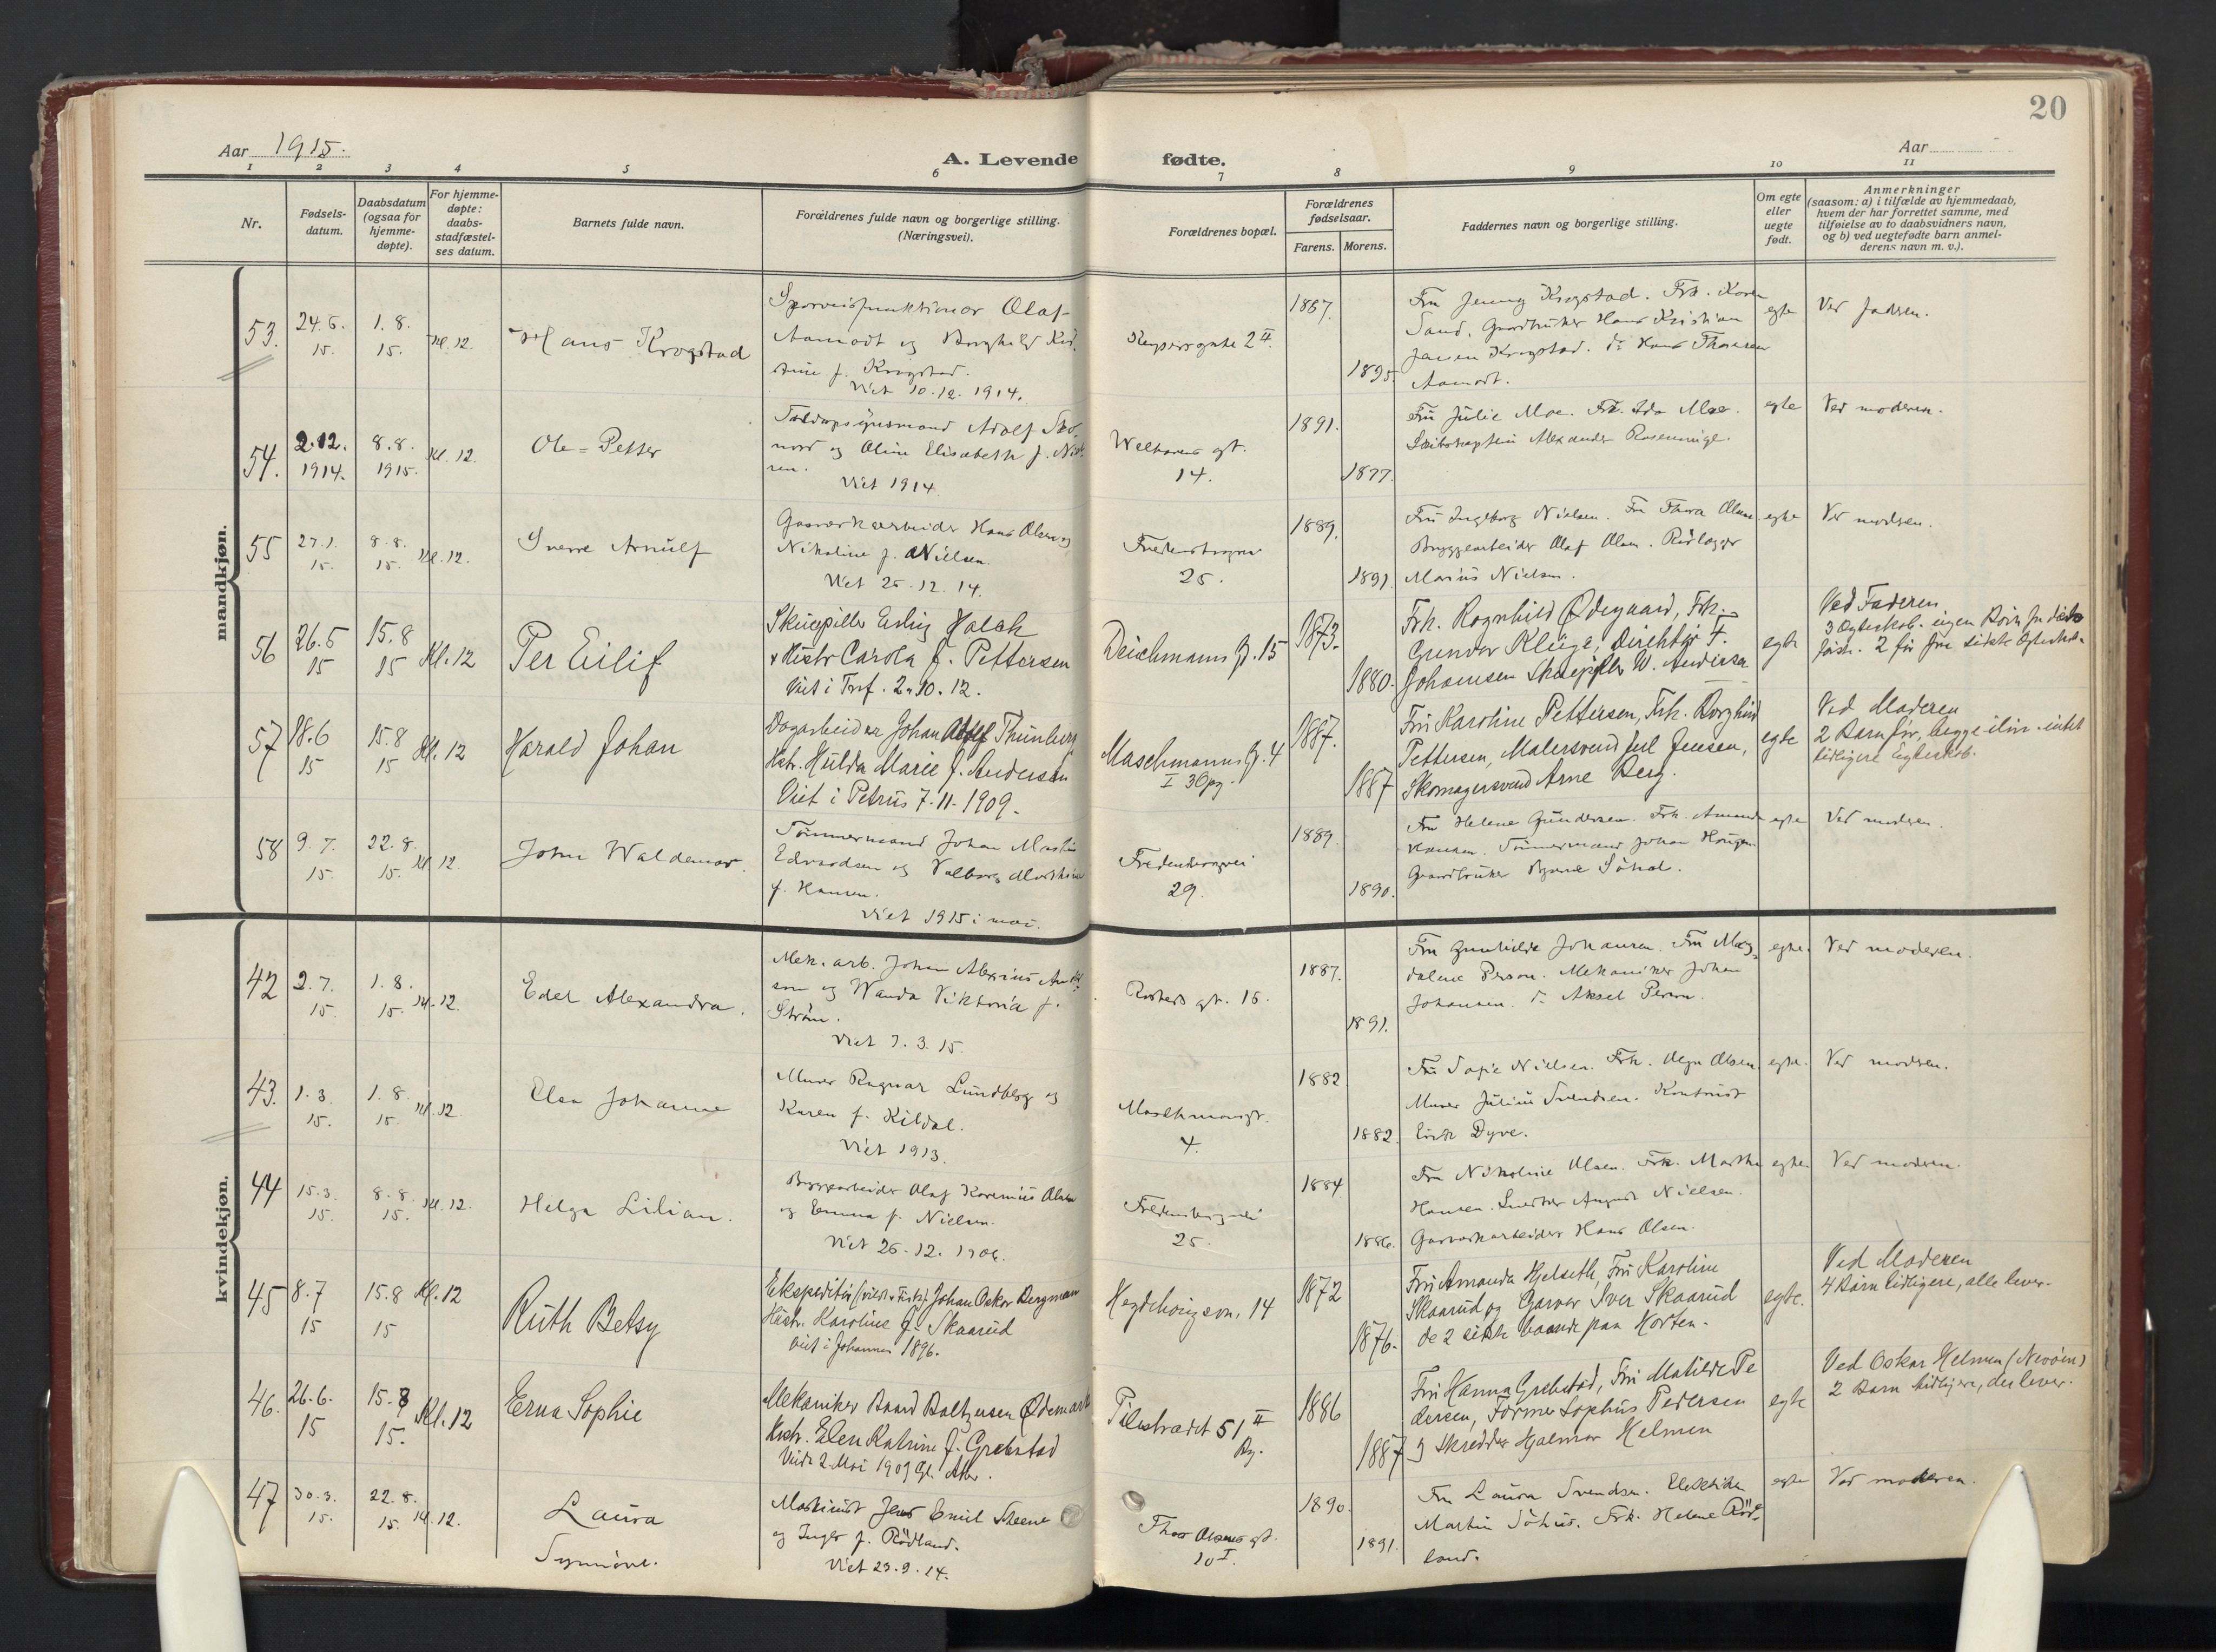 20
Aar 1915.
A. Levende fødte.
Aar
1 2 3 4 5 6 7 8 9 10 11
Nr.
Fødsels-
datum.
Daabsdatum
(ogsaa for
hjemme-
døpte).
For hjemme-
døpte:
daabs-
stadfæstel-
ses datum.
Barnets fulde navn.
Forældrenes fulde navn og borgerlige stilling.
(Næringsvei).
Forældrenes bopæl.
Forældrenes
fødselsaar.
Farens. Morens.
Faddernes navn og borgerlige stilling.
Om egte
eller
uegte
født.
Anmerkninger
(saasom: a) i tilfælde av hjemmedaab,
hvem der har forrettet samme, med
tilføielse av to daabsvidners navn,
og b) ved uegtefødte barn anmel-
derens navn m. v.).
mandkjøn.
53.
24.6.
15.
1.8.
15.
Kl. 12.
Hans Krogstad
Olaf
Aamodt og Borghild
f. Krogstad.
Viet 10.12.1914.
Keysersgate 2 II.
1867.
1895.
Fru Jenny Krogstad. Frk. Karen
Sand. Gaardbruker Hans Kristian
Jansen Krogstad. do Hans Thoresen
Aamodt.
egte
Ved faderen.
54.
2.12.
1914.
8.8.
1915.
Kl. 12.
Ole-Petter
Adolf
og Oline Elisabeth f.
Viet 1914.
Welhavens gt.
14.
1891.
1877.
Fru Julie Moe. Frk. Ida Moe.
Skibskaptein Alexander
egte
Ved moderen.
55
27.1.
15.
8.8.
15.
Kl. 12.
Sverre Arnulf
Gasverkarbeider Hans Olsen og
Nikoline f. Nielsen.
Viet 25.12.14.
Fredensborgvei
25.
1889.
1891
Fru Ingeborg Nielsen. Fru Thora Olsen.
Bryggearbeider Olaf Olsen. Rørlægger
Marius Nielsen.
egte
Ved moderen.
56
26.5
15
15.8
15
Kl. 12
Per Eilif
Skuespiller Erling Halck
& Hustr Carola f. Pettersen
Viet i Tref. 2.10.12.
Deichmanns G. 15
1873.
1880.
Frk. Ragnhild Ødegaard, Frk.
Gunvor Kluge, Direktør F.
Johannsen Skuespiller W. Andersen
egte
Ved Faderen
3 Ægteskab.
57
18.6
15
15.8
15
Kl. 12
Harald Johan
Dagarbeider Johan Adolf Thunberg
Hstr. Hulda Marie f. Andersen
Viet i Petrus 7.11.1909.
Maschmanns G. 4
I 3 Opg.
1887.
1887
Fru Karoline Pettersen, Frk. Borghild
Pettersen, Malersvend Juel Jensen,
Skomagersvend Arne Berg.
egte
Ved Moderen
2 Barn før, begge ilive - intet
tidligere Egteskab.
58
9.7.
15.
22.8.
15.
Kl. 12
John Waldemar.
Tømmermand Johan Martin
Edvardsen og Valborg Mathilde
f. Hansen.
Viet 1915 i mai.
Fredensborgvei
29.
1889.
1890.
Fru Helene Gundersen. Frk. Amanda
Hansen. Tømmermand Johan Haugen.
Gaardbruker Bjarne
egte
Ved moderen.
kvindekjøn.
42
2.7.
15.
1.8.
15.
Kl. 12.
Edel Alexandra.
Mek. arb. Johan Alexius
og Wanda Viktoria f.
Strøm.
Viet 7.3.15.
Rosteds gt. 15.
1887.
1891.
Fru Gunhilde Johansen. Fru Mag-
dalene Person. Mekaniker Johan
Johansen. do Aksel Person.
egte.
Ved moderen.
43.
1.3.
15.
1.8.
15.
Kl. 12
Elsa Johanne
Murer Ragnar Lundberg og
Karen f. Kildal.
Viet 1913.
Maschmannsgt.
4.
1882
1882.
Fru Sofie Nielsen. Frk. Olga Olsen.
Murer Julius Svendsen. Kontorist
Erik Dyve.
egte.
Ved moderen.
44
15.3.
15.
8.8.
15.
Kl. 12.
Helga Lilian.
Bryggearbeider Olaf Karenius Olsen
og Emma f. Nielsen.
Viet 26.12.1906.
Fredensborgvei
25.
1884
1886.
Fru Nikoline Olsen. Frk. Martha
Hansen. Snedker August Nielsen.
Gasverkarbeider Hans Olsen.
egte.
Ved moderen.
45
8.7
15
15.8
15
Kl. 12
Ruth Betsy
Johan Oskar Bergman
Hustr. Karoline f. Skaarud
Viet i Johannes 1896.
Hegdehaugsvn. 14
1872
1876.
Fru Amanda Hjelseth, Fru Karoline
Skaarud og Garver Iver Skaarud
de 2 sidste boende paa Horten.
egte.
Ved Moderen
4 Barn tidligere, alle lever.
46.
26.6.
15
15.8
15.
Kl. 12
Erna Sophie
Mekaniker Baard Baltzersen Ødemark
Hustr. Elen Katrine f. Grebstad
Viede 2 Mai 1909 Gl. Aker.
Pilestrædet 51 II
Bg.
1886
1887
Fru Hanna Grebstad, Fru Matilde Pe
dersen, Former Sophus Pedersen
og Skrædder Hjalmar Helmen
egte
Ved Oskar Helmen (Nevøen)
2 Barn tidligere, der lever.
47
30.3.
15.
22.8.
15.
Kl. 12.
Laura
Synnöve.
Maskinist Jens Emil Steene
og Inger f. Rödland.
Viet 23.9.14.
Thor Olsens gt.
10 I.
1890.
1891.
Fru Laura Svendsen. Elektriker
Martin Frk. Helene Röd-
land.
egte
Ved moderen.